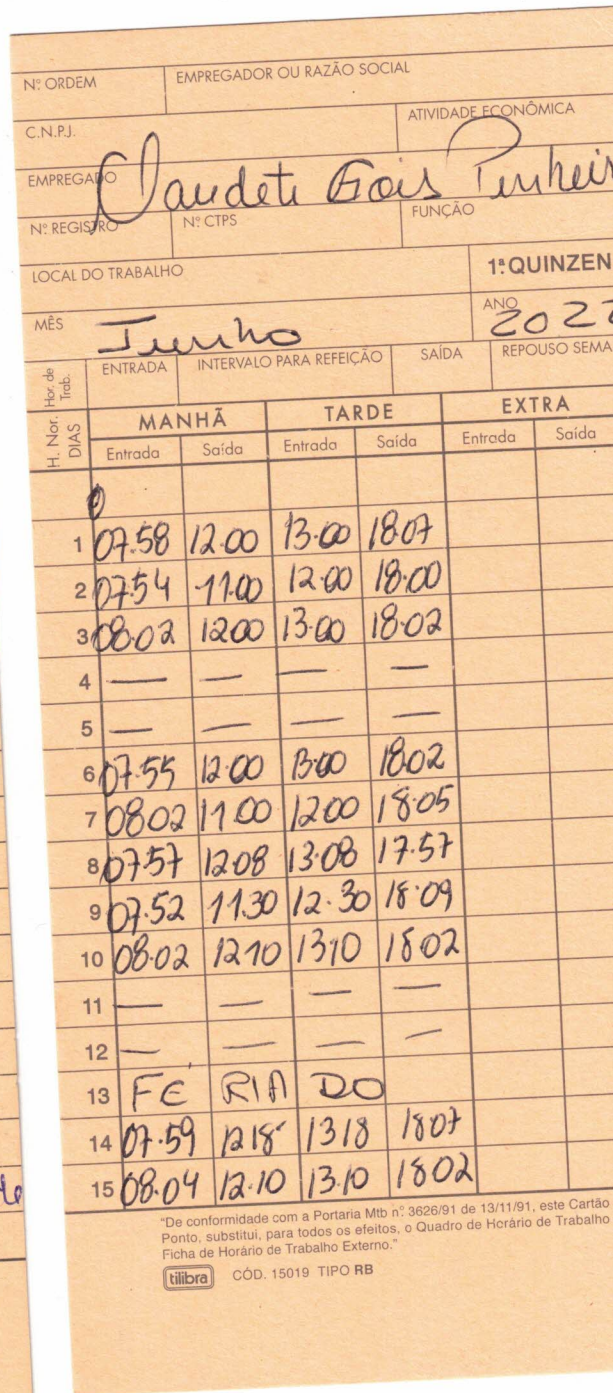 Nº ORDEM EMPREGADOR OU RAZÃO SOCIAL
C.N.P.J. ATIVIDADE ECONÔMICA
EMPREGADO Claudete Gois Pinheir
Nº REGISTRO Nº CTPS FUNÇÃO
LOCAL DO TRABALHO 1ª QUINZEN
MÊS Junho ANO 2022
H. Nor. Hor. de Trab. ENTRADA INTERVALO PARA REFEIÇÃO SAÍDA REPOUSO SEMA
DIAS MANHÃ TARDE EXTRA
Entrada Saída Entrada Saída Entrada Saída
1 07.58 12.00 13.00 18.07
2 07.54 11.00 12.00 18.00
3 08.02 12.00 13.00 18.02
4 — — — —
5 — — — —
6 07.55 12.00 13.00 18.02
7 08.02 11.00 12.00 18.05
8 07.57 12.08 13.08 17.57
9 07.52 11.30 12.30 18.09
10 08.02 12.10 13.10 18.02
11 — — — —
12 — — — —
13 FE RIA DO
14 07.59 12.18 13.18 18.07
15 08.04 12.10 13.10 18.02
"De conformidade com a Portaria Mtb nº 3626/91 de 13/11/91, este Cartão
Ponto, substitui, para todos os efeitos, o Quadro de Horário de Trabalho
Ficha de Horário de Trabalho Externo."
tilibra CÓD. 15019 TIPO RB